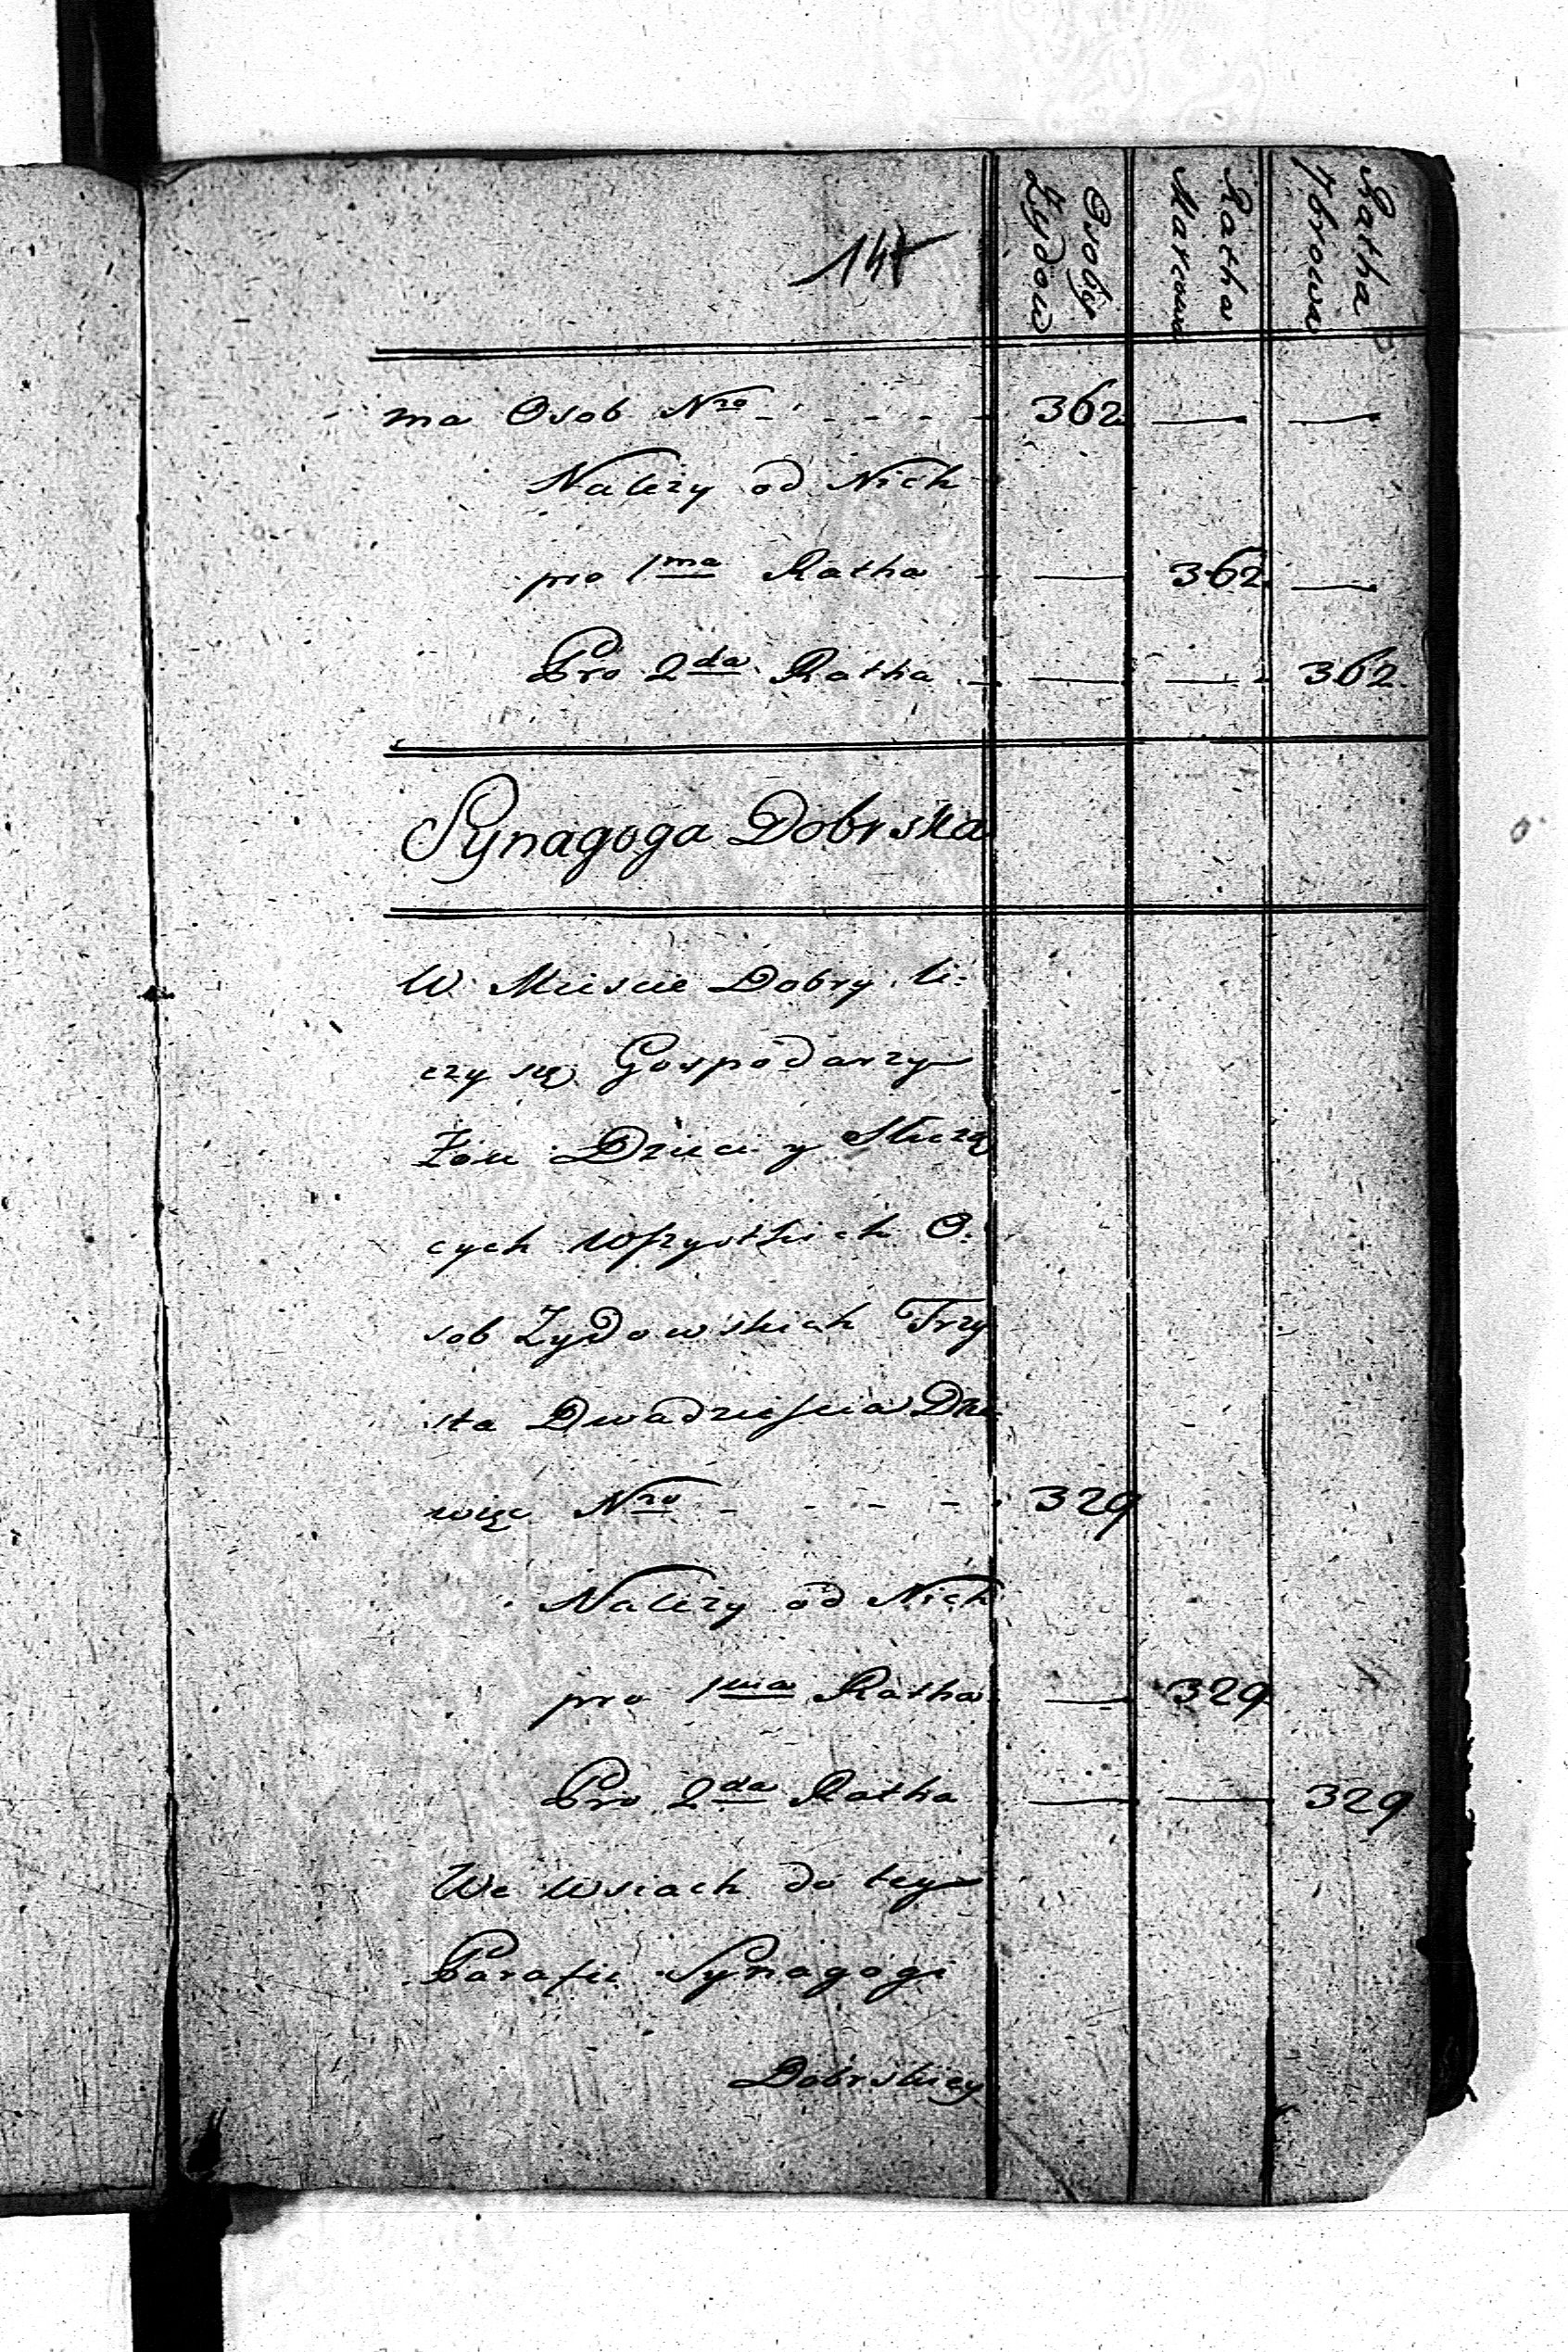 Osoby Zydow
Ratha Marcowa
Ratha 7browa
ma Osob Nro - - - - - 362 — —
Należy od Nich
pro 1ma Ratha - — 362 —
Pro 2da Ratha - — — 362
Synagoga Dobrska
W Miescie Dobry li-
czy się Gospodarzy
Żon Dzieci y Służą
cych wszystkich O-
sob Zydowskich Trzy
sta Dwadziescia Dzie-
więc Nro - - - - 329
Należy od Nich
pro 1ma Ratha — 329
Pro 2da Ratha — — 329
We wsiach do tey
Parafii Synagogi
Dobrskiey